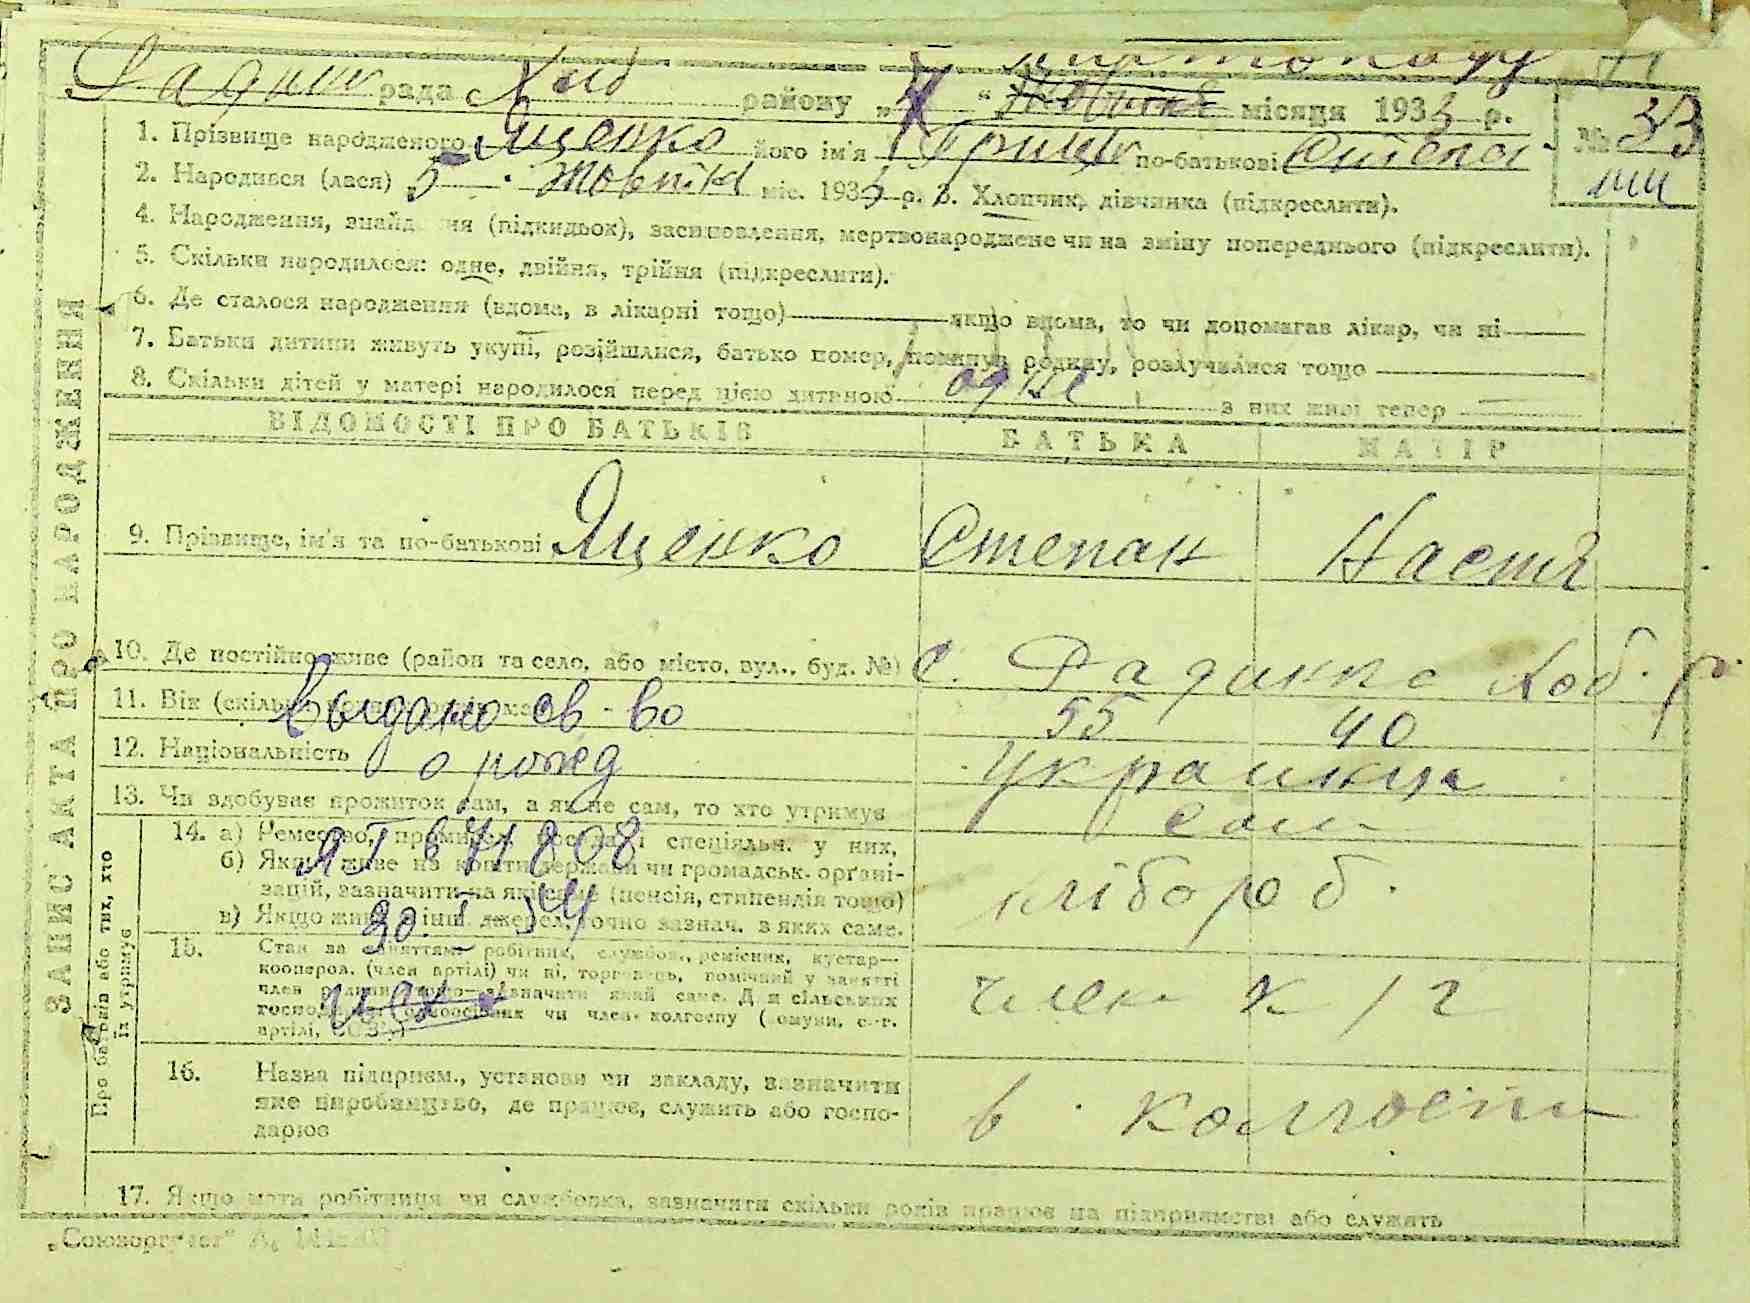 рада району „ “ місяця 1933 р.
№ 33
1. Прізвище народженого Яценко його ім'я Гриць по-батькові Степан
2. Народився (лася) 5 жовтня міс. 1933 р. 3. Хлопчик, дівчинка (підкреслити).
4. Народження, знайдення (підкидьок), засиновлення, мертвонароджене чи на зміну попереднього (підкреслити).
5. Скільки народилося: одне, двійня, трійня (підкреслити).
6. Де сталося народження (вдома, в лікарні тощо) якщо вдома, то чи допомагав лікар, чи ні
7. Батьки дитини живуть укупі, розійшлися, батько помер, покинув родину, розлучилися тощо
8. Скільки дітей у матері народилося перед цією дитиною одне з них живі тепер
ВІДОМОСТІ ПРО БАТЬКІВ БАТЬКА МАТІР
ЗАПИС АКТА ПРО НАРОДЖЕННЯ
9. Прізвище, ім'я та по-батькові Яценко Степан Настя
10. Де постійно живе (район та село, або місто, вул., буд. №) с. Коб. р.
11. Вік 55 40
Выдано св-во
12. Національність украинци
о рожд
13. Чи здобуває прожиток сам, а як не сам, то хто утримує сам
Про батьків або тих, хто їх утримує
14. а) Ремесло, спеціяльн. у них, хлібороб.
671808
б) Якщо живе на кошти держави чи громадськ. орґані-
зацій, зазначити на які саме (пенсія, стипендія тощо)
в) Якщо живе з інш. джерел, точно зазнач. з яких саме.
30.
15. Стан за заняттям робітник, службов., ремісник, кустар—
кооперов. (член артілі) чи ні, торговець, помічний у занятті
член родини зазначити який саме. Для сільських
чи член колгоспу (комуни, с.-г.
артілі, СОЗ'у)
член к/г
16. Назва підприєм., установи чи закладу, зазначити
яке виробництво, де працює, служить або госпо-
дарює
в колгоспи
17. Якщо мати робітниця чи службовка, зазначити скільки років працює на підприємстві або служить